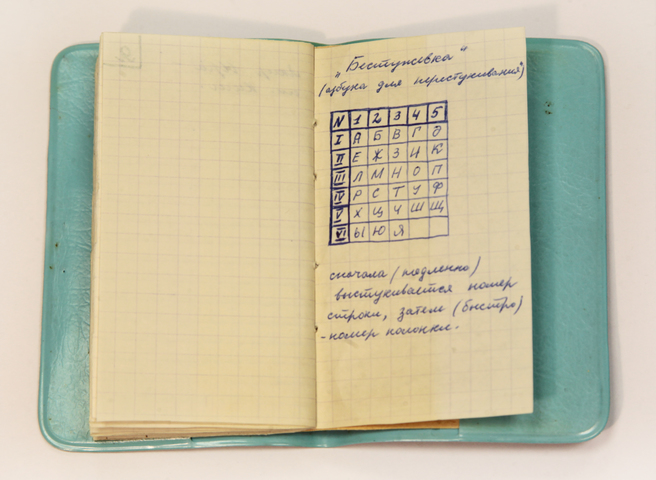 „Бестужевка"
(азбука для перестукивания)
N 1 2 3 4 5
I А Б В Г Д
II Е Ж З И К
III Л М Н О П
IV Р С Т У Ф
V Х Ц Ч Ш Щ
VI Ы Ю Я
сначала (медленно)
выстукивается номер
строки, затем (быстро)
- номер колонки.